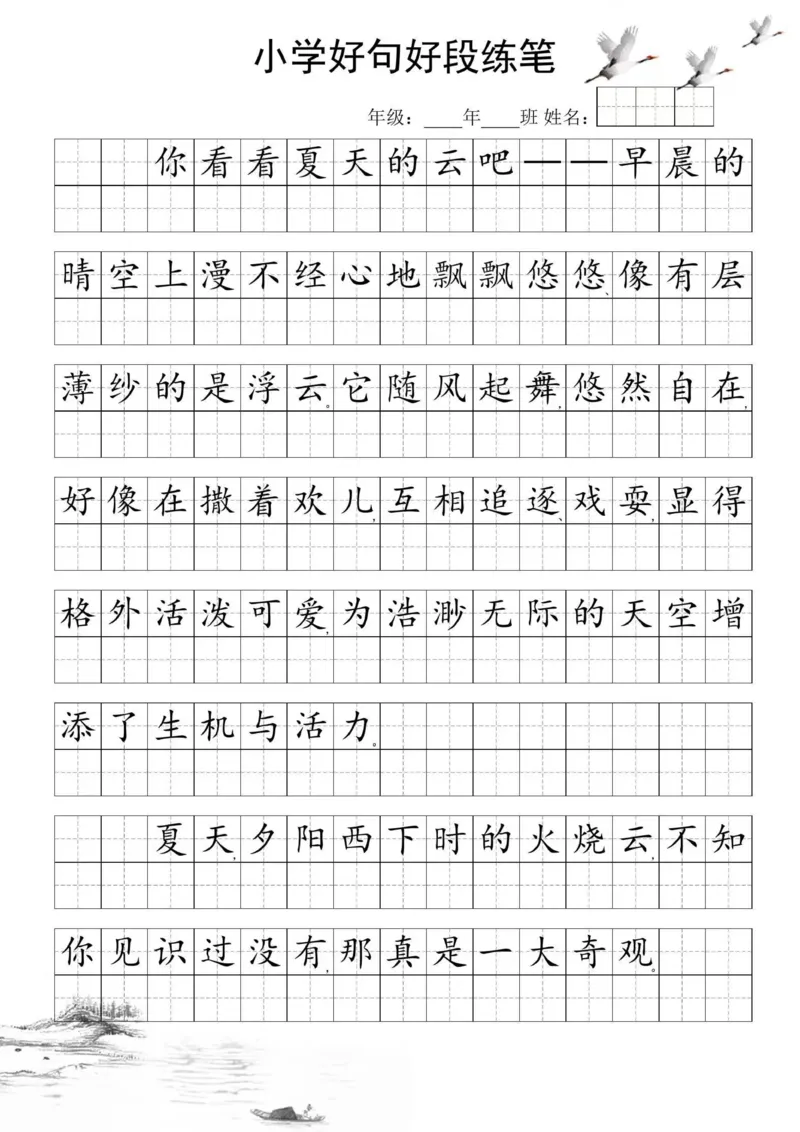 小学好句好段练笔
年级：____年____班 姓名：
你看看夏天的云吧——早晨的
晴空上漫不经心地飘飘悠悠、像有层
薄纱的是浮云。它随风起舞,悠然自在,
好像在撒着欢儿,互相追逐、戏耍,显得
格外活泼可爱,为浩渺无际的天空增
添了生机与活力。
夏天,夕阳西下时的火烧云,不知
你见识过没有,那真是一大奇观。